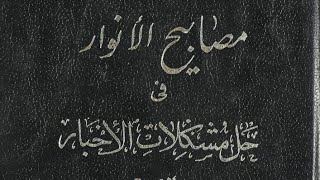 مصابيح الأنوار
فى
حل مشكلات الأخبار